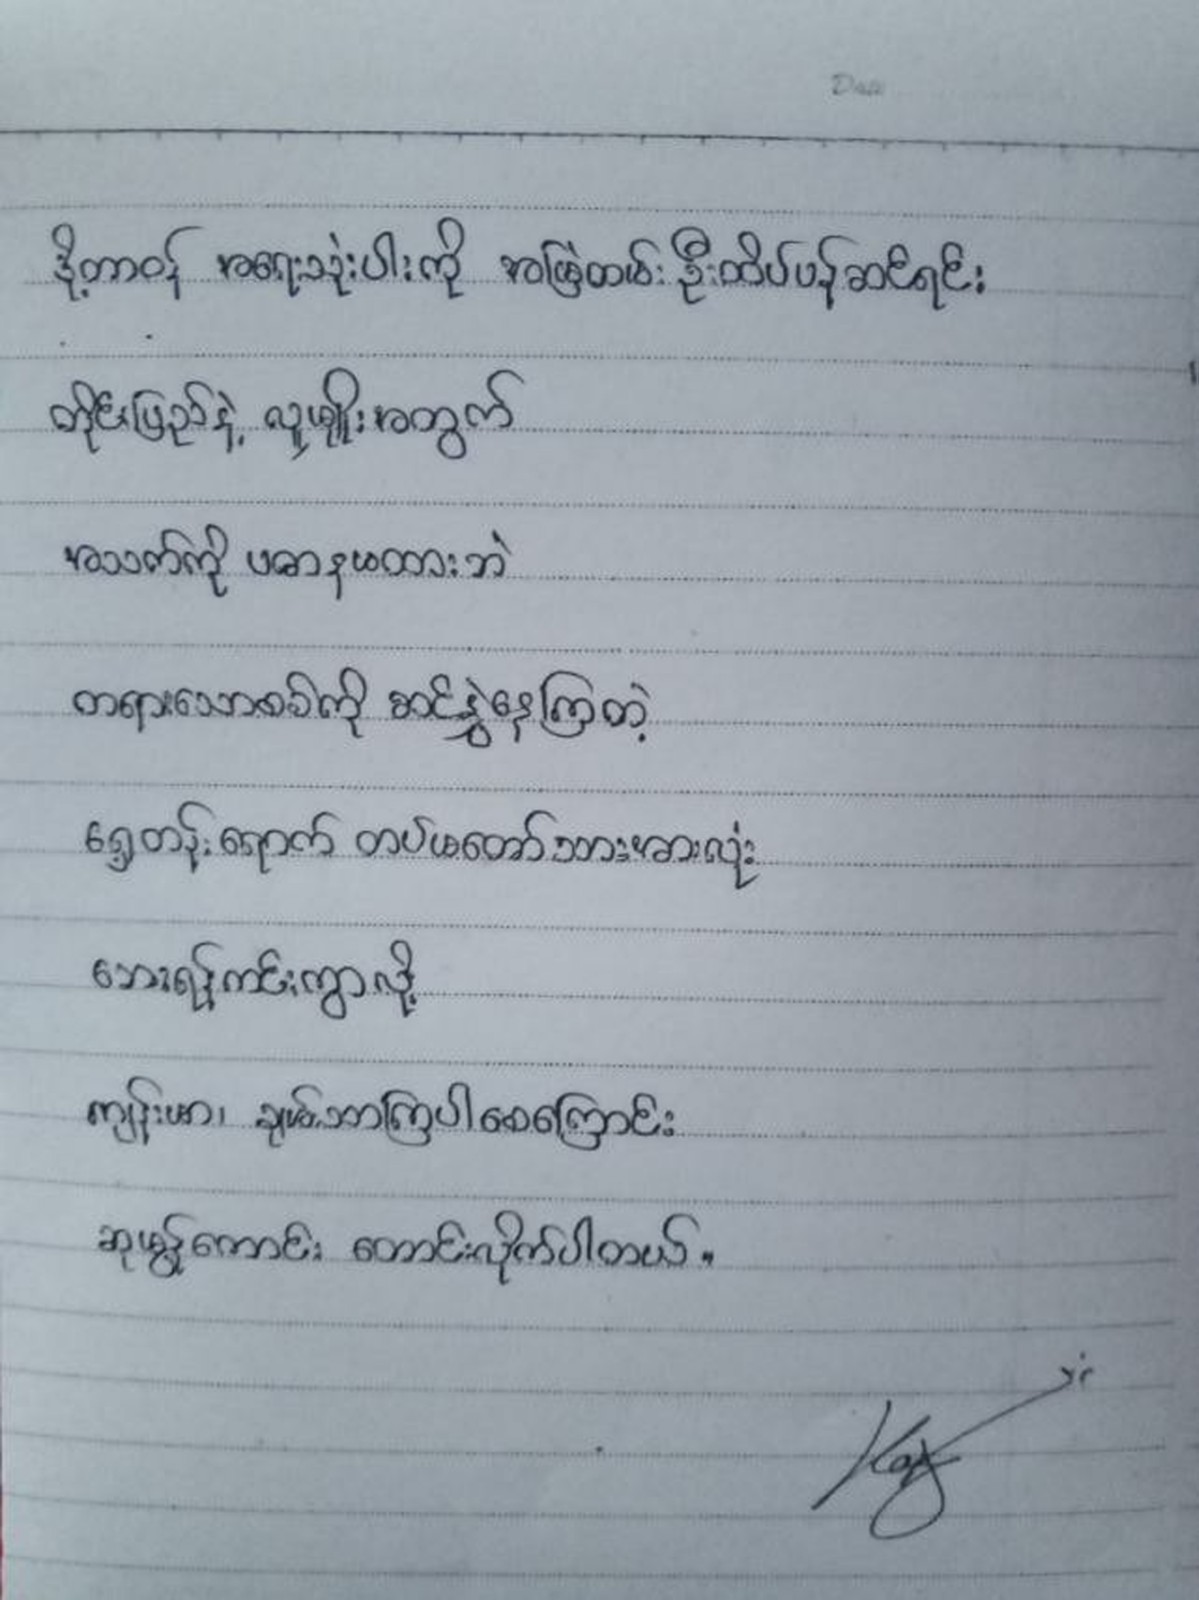 Date
ဒို့တာဝန် အရေးသုံးပါးကို အမြဲတမ်း ဦးထိပ်ပန်ဆင်ရင်း
တိုင်းပြည်နဲ့ လူမျိုးအတွက်
အသက်ကို ပဓာနမထားဘဲ
တရားသောစစ်ကို ဆင်နွှဲနေကြတဲ့
ရွှေတန်းရောက် တပ်မတော်သားအားလုံး
ဘေးရန်ကင်းကွာလို့
ကျန်းမာ၊ ချမ်းသာကြပါစေကြောင်း
ဆုမွန်ကောင်း တောင်းလိုက်ပါတယ်။